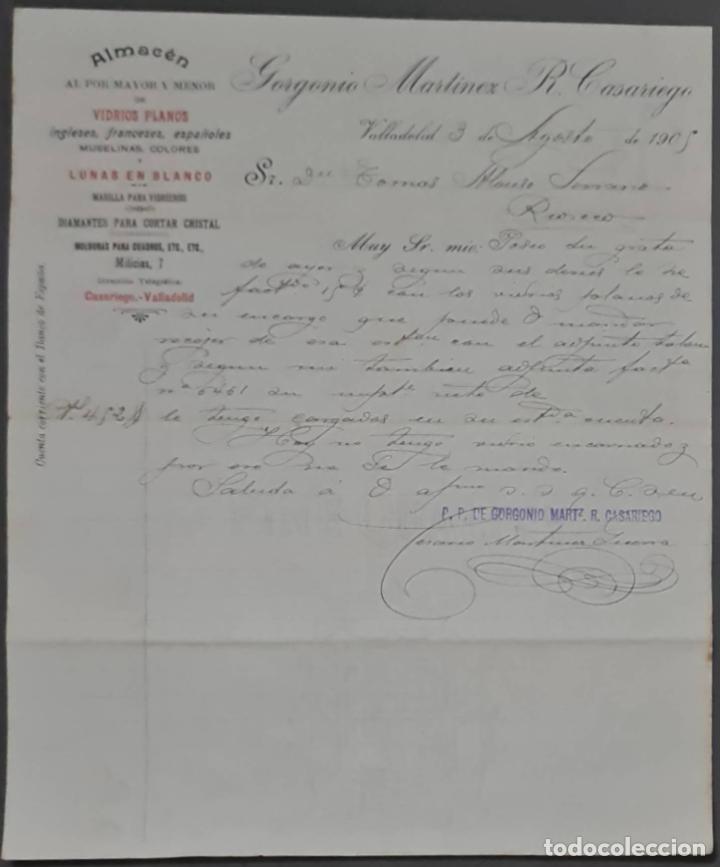 Almacén
AL POR MAYOR Y MENOR
DE
VIDRIOS PLANOS
ingleses, franceses, españoles
MUSELINAS, COLORES
Y
LUNAS EN BLANCO
MASILLA PARA VIDRIEROS
DIAMANTES PARA CORTAR CRISTAL
MOLDURAS PARA CUADROS, ETC., ETC.
Milicias, 7
Dirección Telegráfica
Casariego.-Valladolid
Cuenta corriente con el Banco de España.
Gorgonio Martínez R. Casariego
Valladolid 3 de Agosto de 1905
Sr. Dn Tomas Alonso Serrano
Rioseco
Muy Sr. mio: Poseo su grata
de ayer y segun sus deseos le he
con los vidrios planos de
su encargo que puede mandar
recojer de esa con el adjunto
y segun mi tambien adjunta factª
nº 6461 su neto de
452 le tengo cargadas en su cuenta.
Hoy no tengo vidrio encarnado y
por eso no se le mando.
Saluda á
P. P. DE GORGONIO MARTZ. R. CASARIEGO
Martinez
todocoleccion